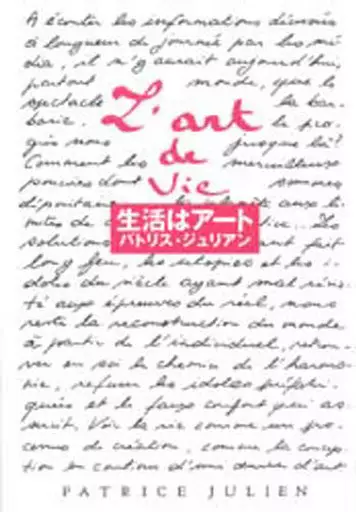 A écouter les informations déversées
à longueur de journée par les mé-
dia, il n'y aurait aujourd'hui,
partout monde, que le
spectacle la bar-
barie. le pro-
grès nous jusque là?
L'art
de
Vie
Comment les merveilleux
pouvoirs dont sommes
dépositaires
生活はアート
パトリス・ジュリアン
mites de
solutions fait
long feu, les utopies et les i-
doles du siècle ayant mal résis-
té aux épreuves du réel, nous
reste la reconstruction du monde
à partir de l'individuel, retrou-
ver en soi le chemin de l'harmo-
nie, refuser les idoles préfabri-
quées et le faux confort qui as-
servit. Voir la vie comme un pro-
cessus de création, comme la concep-
tion en continu d'une œuvre d'art.
PATRICE JULIEN